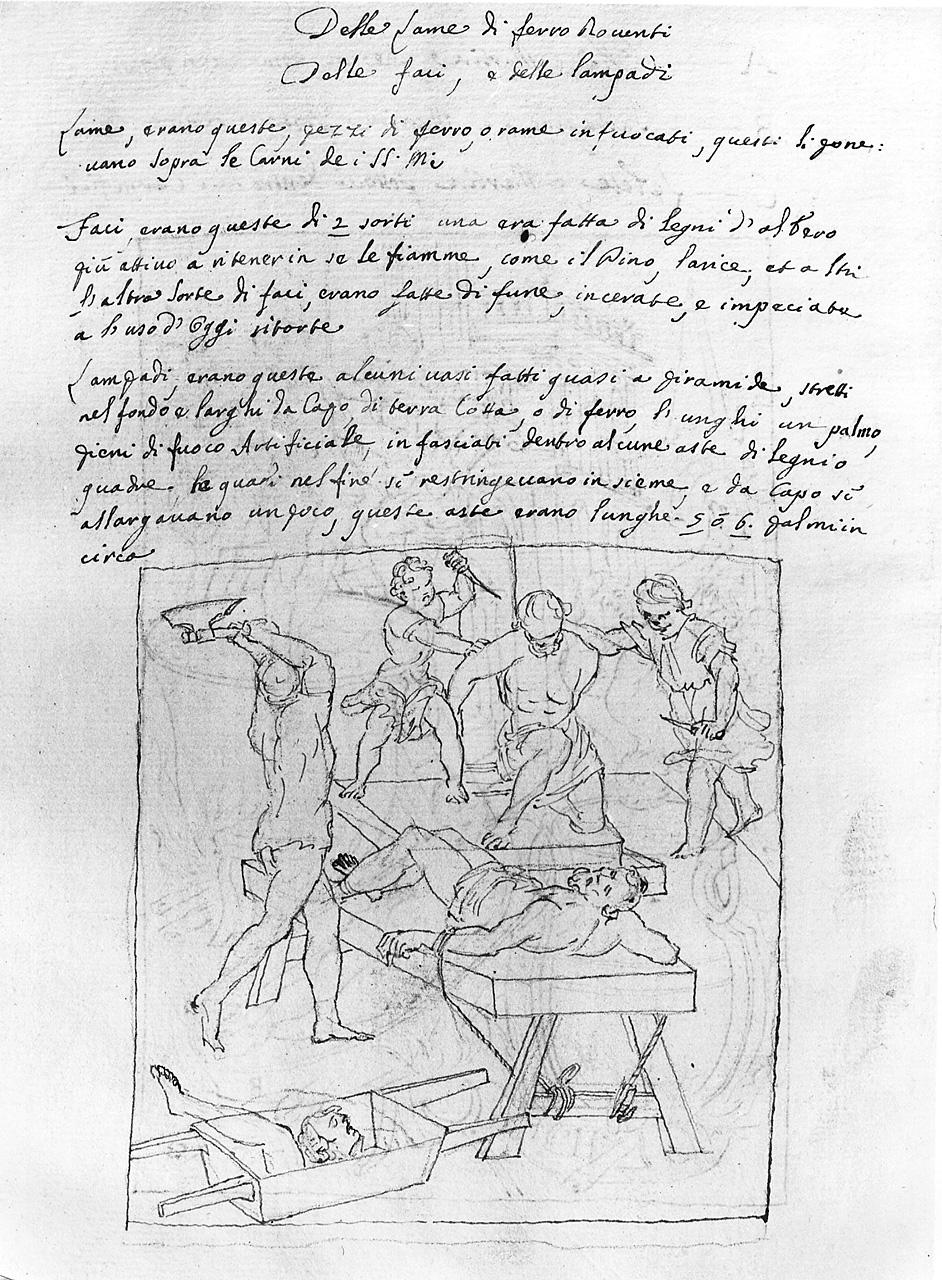 Delle Lame di ferro Roventi
Delle faci, e delle lampadi
Lame, erano queste, pezzi di ferro, o rame infuocati, questi si pone:
vano sopra le Carni de i SS. Mi
Faci, erano queste di 2 sorti una era fatta di Legni d'albero
più attivo a ritener in se le fiamme, come il Pino, larice, et altri
l'altra sorte di faci, erano fatte di fune, incerate, e impeciate
a l'uso d'Oggi ritorte
Lampadi, erano queste alcuni vasi fatti quasi a piramide, stretti
nel fondo e larghi da Capo di terra Cotta, o di ferro, lunghi un palmo,
pieni di fuoco Artificiale, in fasciati dentro alcune aste di legnio
quadre, le quali nel fine si restringevano in sieme, e da Capo si
allargavano un poco, queste aste erano lunghe 5 ò 6. palmi in
circa